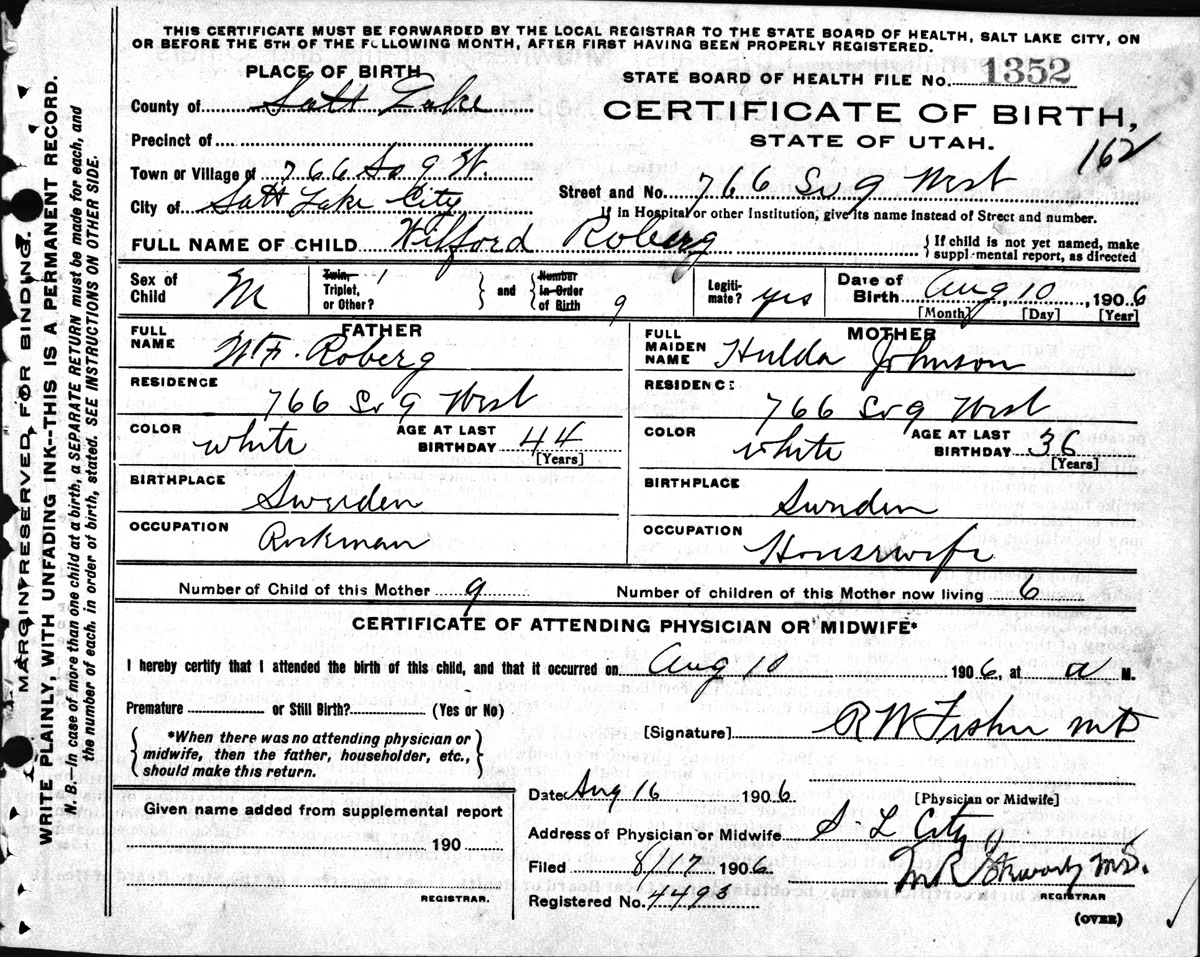 THIS CERTIFICATE MUST BE FORWARDED BY THE LOCAL REGISTRAR TO THE STATE BOARD OF HEALTH, SALT LAKE CITY, ON
OR BEFORE THE 5TH OF THE FOLLOWING MONTH, AFTER FIRST HAVING BEEN PROPERLY REGISTERED.
PLACE OF BIRTH
STATE BOARD OF HEALTH FILE No. 1352
County of Salt Lake
CERTIFICATE OF BIRTH,
STATE OF UTAH.
162
Precinct of
Town or Village of 766 So 9 W.
Street and No. 766 So 9 West
City of Salt Lake City
If in Hospital or other Institution, give its name instead of Street and number.
FULL NAME OF CHILD Wilford Roberg
If child is not yet named, make
supplemental report, as directed
Sex of Child M
Twin, Triplet, or Other? 1
and
Number in Order of Birth 9
Legiti-mate? yes
Date of Birth Aug 10, 1906
[Month] [Day] [Year]
FATHER
FULL NAME W. F. Roberg
RESIDENCE
766 So 9 West
COLOR white
AGE AT LAST BIRTHDAY 44
[Years]
BIRTHPLACE
Sweden
OCCUPATION
MOTHER
FULL MAIDEN NAME Hulda Johnson
RESIDENCE
766 So 9 West
COLOR white
AGE AT LAST BIRTHDAY 36
[Years]
BIRTHPLACE
Sweden
OCCUPATION
Housewife
Number of Child of this Mother 9
Number of children of this Mother now living 6
CERTIFICATE OF ATTENDING PHYSICIAN OR MIDWIFE*
I hereby certify that I attended the birth of this child, and that it occurred on Aug 10 1906, at a M.
Premature or Still Birth? (Yes or No)
[Signature] R W Fisher MD
*When there was no attending physician or
midwife, then the father, householder, etc.,
should make this return.
Date Aug 16 1906
[Physician or Midwife]
Given name added from supplemental report
190
REGISTRAR.
Address of Physician or Midwife S L City
Filed 8/17 1906
M R Stewart MD.
REGISTRAR
Registered No. 4493
(OVER)
MARGIN RESERVED FOR BINDING.
WRITE PLAINLY, WITH UNFADING INK--THIS IS A PERMANENT RECORD.
N. B. In case of more than one child at a birth, a SEPARATE RETURN must be made for each, and
the number of each, in order of birth, stated. SEE INSTRUCTIONS ON OTHER SIDE.